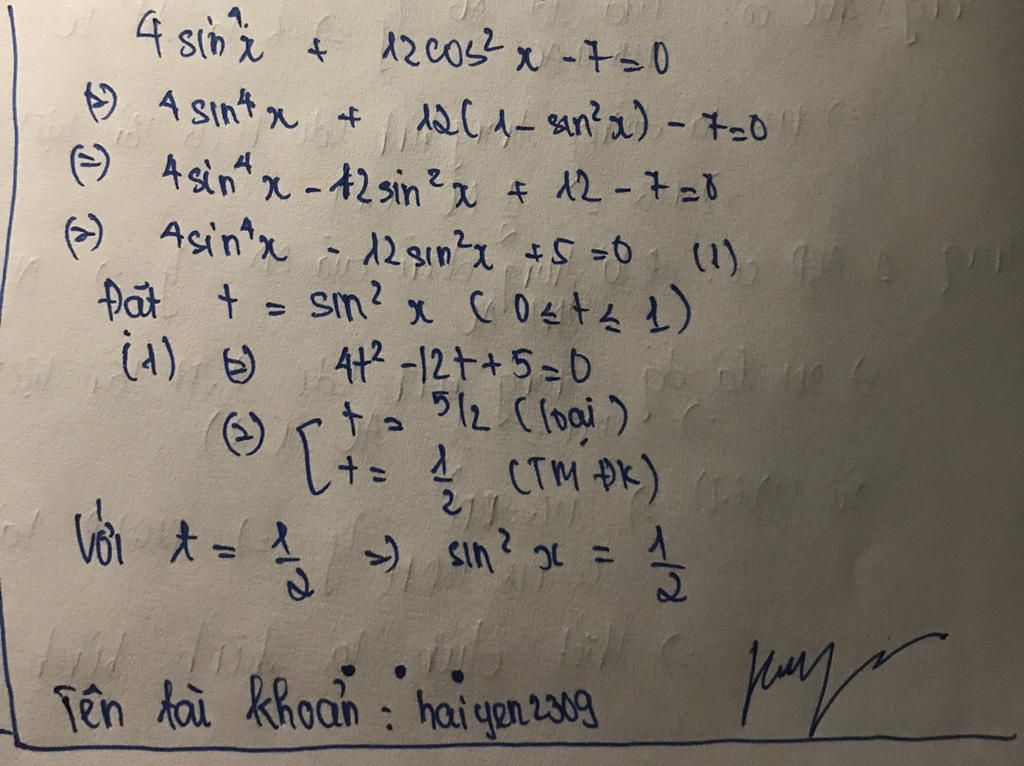 4 sin⁴x + 12cos² x - 7 = 0
(=) 4 sin⁴ x + 12( 1 - sin² x) - 7 = 0
(=) 4 sin⁴ x - 12 sin² x + 12 - 7 = 0
(=) 4 sin⁴x - 12 sin²x + 5 = 0 (1)
Đặt t = sin² x ( 0 ≤ t ≤ 1 )
(1) (=) 4t² - 12t + 5 = 0
(=) [ t = 5/2 (loại)
t = 1/2 (TM ĐK)
Với t = 1/2 => sin² x = 1/2
Tên tài khoản : haiyen2309